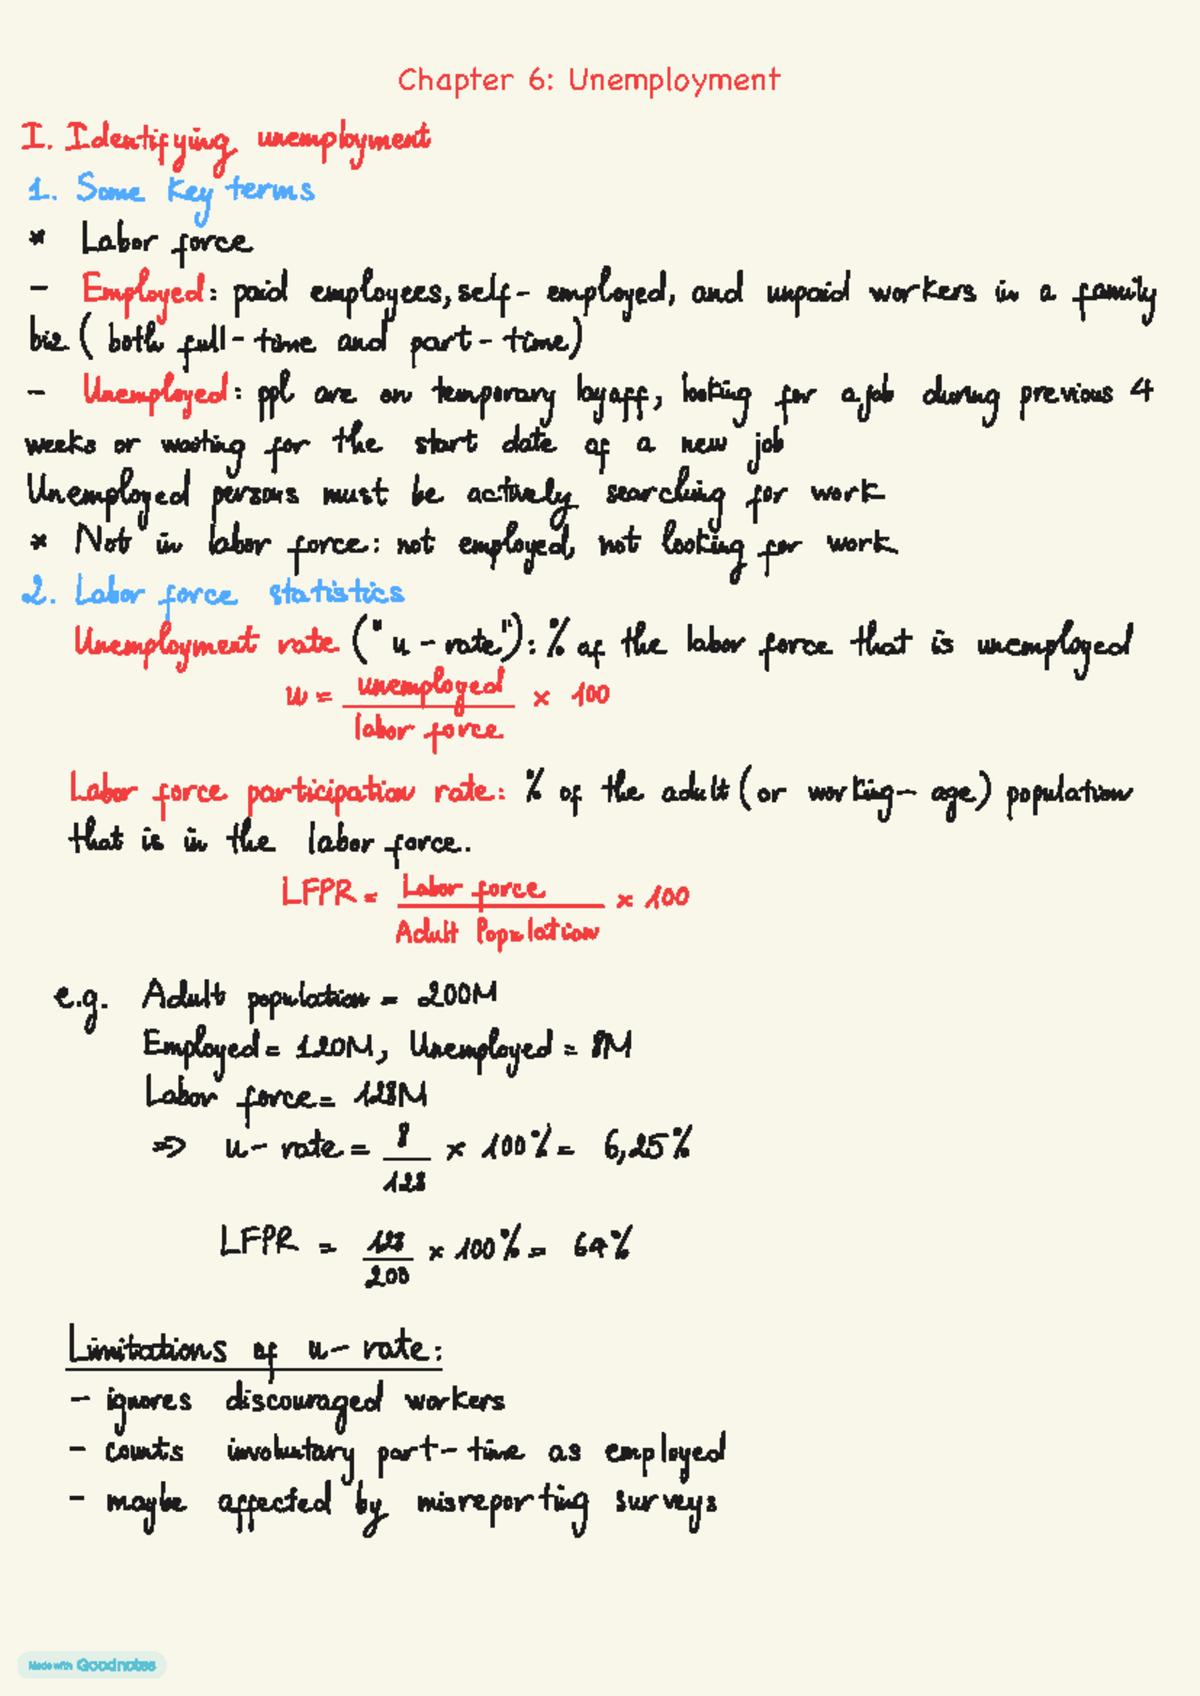 Chapter 6: Unemployment
I. Identifying unemployment
1. Some key terms
* Labor force
- Employed: paid employees, self-employed, and unpaid workers in a family
biz (both full-time and part-time)
- Unemployed: ppl are on temporary layoff, looking for a job during previous 4
weeks or waiting for the start date of a new job
Unemployed persons must be actively searching for work
* Not in labor force: not employed, not looking for work
2. Labor force statistics
Unemployment rate ("u-rate"): % of the labor force that is unemployed
u = unemployed / labor force × 100
Labor force participation rate: % of the adult (or working-age) population
that is in the labor force.
LFPR = Labor force / Adult Population × 100
e.g. Adult population = 200M
Employed = 120M, Unemployed = 8M
Labor force = 128M
=> u-rate = 8 / 128 × 100% = 6,25%
LFPR = 128 / 200 × 100% = 64%
Limitations of u-rate:
- ignores discouraged workers
- counts involuntary part-time as employed
- maybe affected by misreporting surveys
Made with Goodnotes